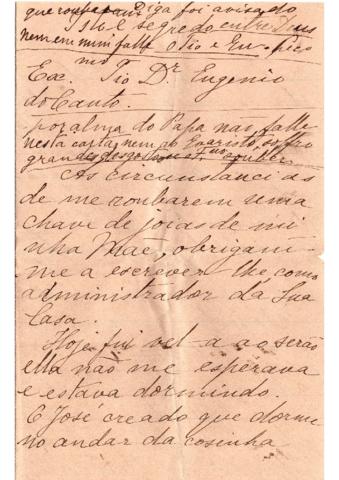 que roupa para Diga foi avisado
Isto é segredo entre Deus
nem em mim falle o Tio e Eu
Exc. mo Tio Dr. Eugenio
do Canto.
por alma do Papa não falle
nesta carta, nem ao Evaristo, soffro
grandes desgostos
As circunstancias
de me roubarem uma
chave de joias de mi
nha Mãe, obrigam-
me a escrever-lhe como
administrador da Sua
Casa.
Hoje fui vel-a ao serão
ella não me esperava
e estava dormindo.
O José creado que dorme
no andar da cosinha